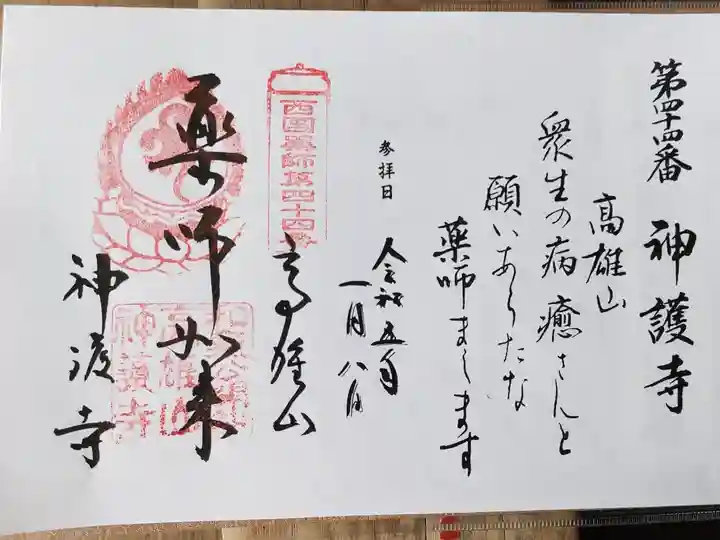 第四十四番 神護寺
高雄山
衆生の病癒さんと
願いあらたな
薬師まします
参拝日
令和五年
一月八日
西国薬師第四十四番
高雄山
薬師如来
神護寺